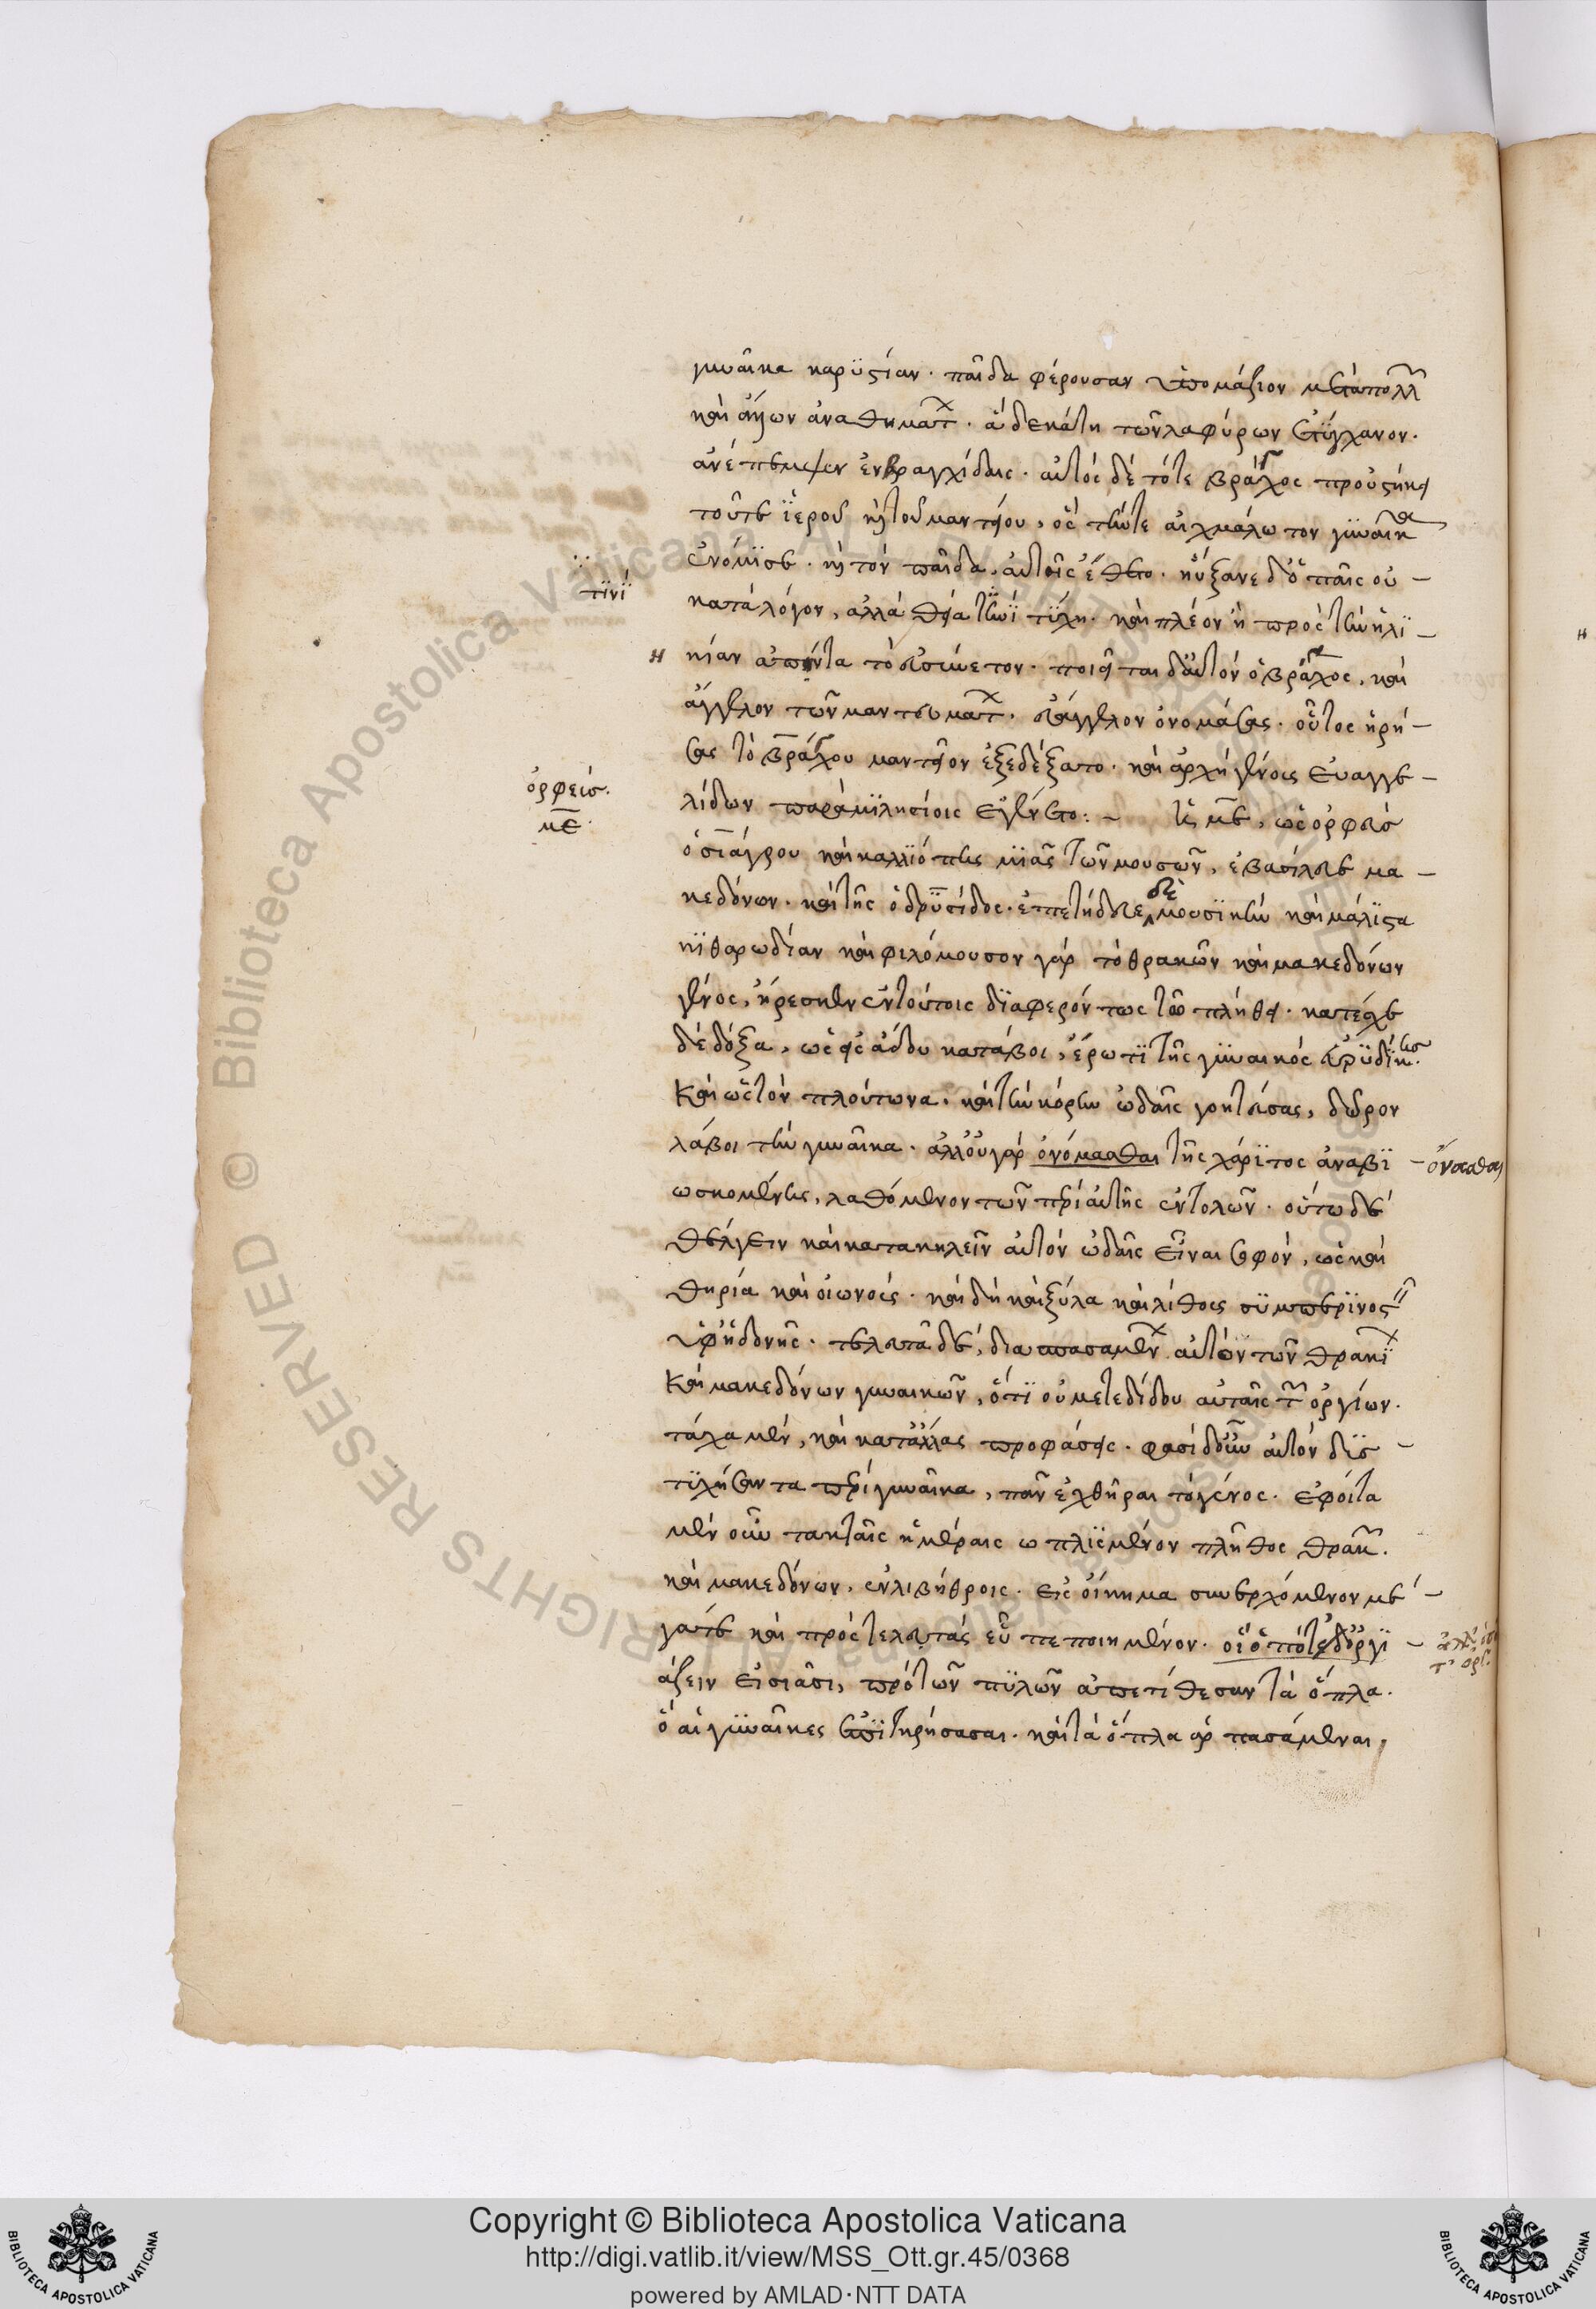 γυναῖκα καρυστίαν· παῖδα φέρουσαν ὑπομάζιον μετὰ πολλῶν
καὶ ἄλλων ἀναθημάτων· ἃ δεκάτη τῶν λαφύρων ἐτύγχανον·
ἀνέπεμψεν ἐν βραγχίδαις· αὐτὸς δὲ τότε βράγχος προὐστήκει
τοῦτε ἱεροῦ καὶ τοῦ μαντείου, ὃς τήν τε αἰχμάλωτον γυναῖκα
ἐνόμισε· καὶ τὸν παῖδα αὐτοῖς ἔθετο· ηὔξανε δ' ὁ παῖς οὐ
τινὶ
κατὰ λόγον, ἀλλὰ θεία τινὶ τύχη· καὶ πλέον ἢ πρὸς τὴν ἡλι
κίαν ἀπήντα τὸ εὐσύνετον· ποιεῖται δ' αὐτὸν ὁ βράγχος, καὶ
ἄγγελον τῶν μαντευμάτων· εὐάγγελον ὀνομάσας· οὗτος ἡβή
σας τὸ βράγχου μαντεῖον ἐξεδέξατο· καὶ ἀρχὴ γένους εὐαγγε
ὀρφεύς.
με.
λίδων παρὰ μιλησίοις ἐγένετο: ~ ἡ με, ὡς ὀρφεὺς
ὁ οἰάγρου καὶ καλλιόπης μιᾶς τῶν μουσῶν, ἐβασίλευε μα
κεδόνων· καὶ τῆς ὀδρυσίδος· ἐπετήδευε δὲ μουσικὴν καὶ μάλιστα
κιθαρωδίαν καὶ φιλόμουσον γὰρ τὸ θρακῶν καὶ μακεδόνων
γένος, ἤρεσκεν ἐν τούτοις διαφερόντως τῶ πλήθει· κατέχει
δὲ δόξα, ὡς εἰς ἅδου καταβοι, ἔρωτι τῆς γυναικὸς εὐρυδίκης.
καὶ ὡς τὸν πλούτωνα, καὶ τὴν κόρην ὠδαῖς γοητεύσας, δῶρον
λάβοι τὴν γυναῖκα· ἀλλ' οὐ γὰρ ὀνόμασθαι τῆς χάριτος ἀναβι
ὄνασθαι
ωσκομένης, λαθόμενον τῶν περὶ αὐτῆς ἐντολῶν· οὕτω δὲ
θέλγειν καὶ κατακηλεῖν αὐτὸν ὠδαῖς εἶναι σοφὸν, ὡς καὶ
θηρία καὶ οἰωνούς· καὶ δὴ καὶ ξύλα καὶ λίθους συμπερινοστεῖν
ὑφ' ἡδονῆς· τελευτᾶ δὲ, διασπασαμένων αὐτὸν τῶν θρακίων
καὶ μακεδόνων γυναικῶν, ὅτι οὐ μετεδίδου αὐταῖς τῶν ὀργίων·
τάχα μὲν, καὶ κατ' ἄλλας προφάσεις· φασὶ δ' οὖν αὐτὸν δυς
τυχήσαντα περὶ γυναῖκα, πᾶν ἐχθῆραι τὸ γένος· ἐφοίτα
μὲν οὖν τακταῖς ἡμέραις ὡπλισμένον πλῆθος θρακῶν
καὶ μακεδόνων, ἐν λιβήθροις· εἰς οἴκημα συνερχόμενον μέ
γα τε καὶ πρὸς τελετὰς εὖ πεποιημένον· οἳ ὁπότε δ' ὀργι
άζειν εἰσιᾶσι, πρὸ τῶν πυλῶν ἀπετίθεσαν τὰ ὅπλα·
ὃ αἱ γυναῖκες ἐπιτηρήσασαι· καὶ τὰ ὅπλα ἁρπασάμεναι,
Copyright © Biblioteca Apostolica Vaticana
http://digi.vatlib.it/view/MSS_Ott.gr.45/0368
powered by AMLAD·NTT DATA
BIBLIOTECA APOSTOLICA VATICANA
BIBLIOTECA APOSTOLICA VATICANA